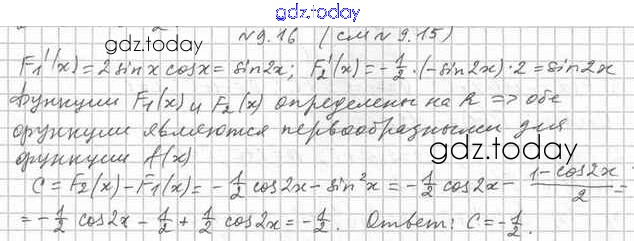 gdz.today
N 9.16 (см N 9.15)
gdz.today
F₁'(x) = 2 sin x cos x = sin 2x; F₂'(x) = -1/2 · (-sin 2x) · 2 = sin 2x
Функции F₁(x) и F₂(x) определены на R => обе
функции являются первообразными для
функции f(x)
gdz.today
C = F₂(x) - F₁(x) = -1/2 cos 2x - sin² x = -1/2 cos 2x - (1 - cos 2x)/2 =
= -1/2 cos 2x - 1/2 + 1/2 cos 2x = -1/2. Ответ: C = -1/2.